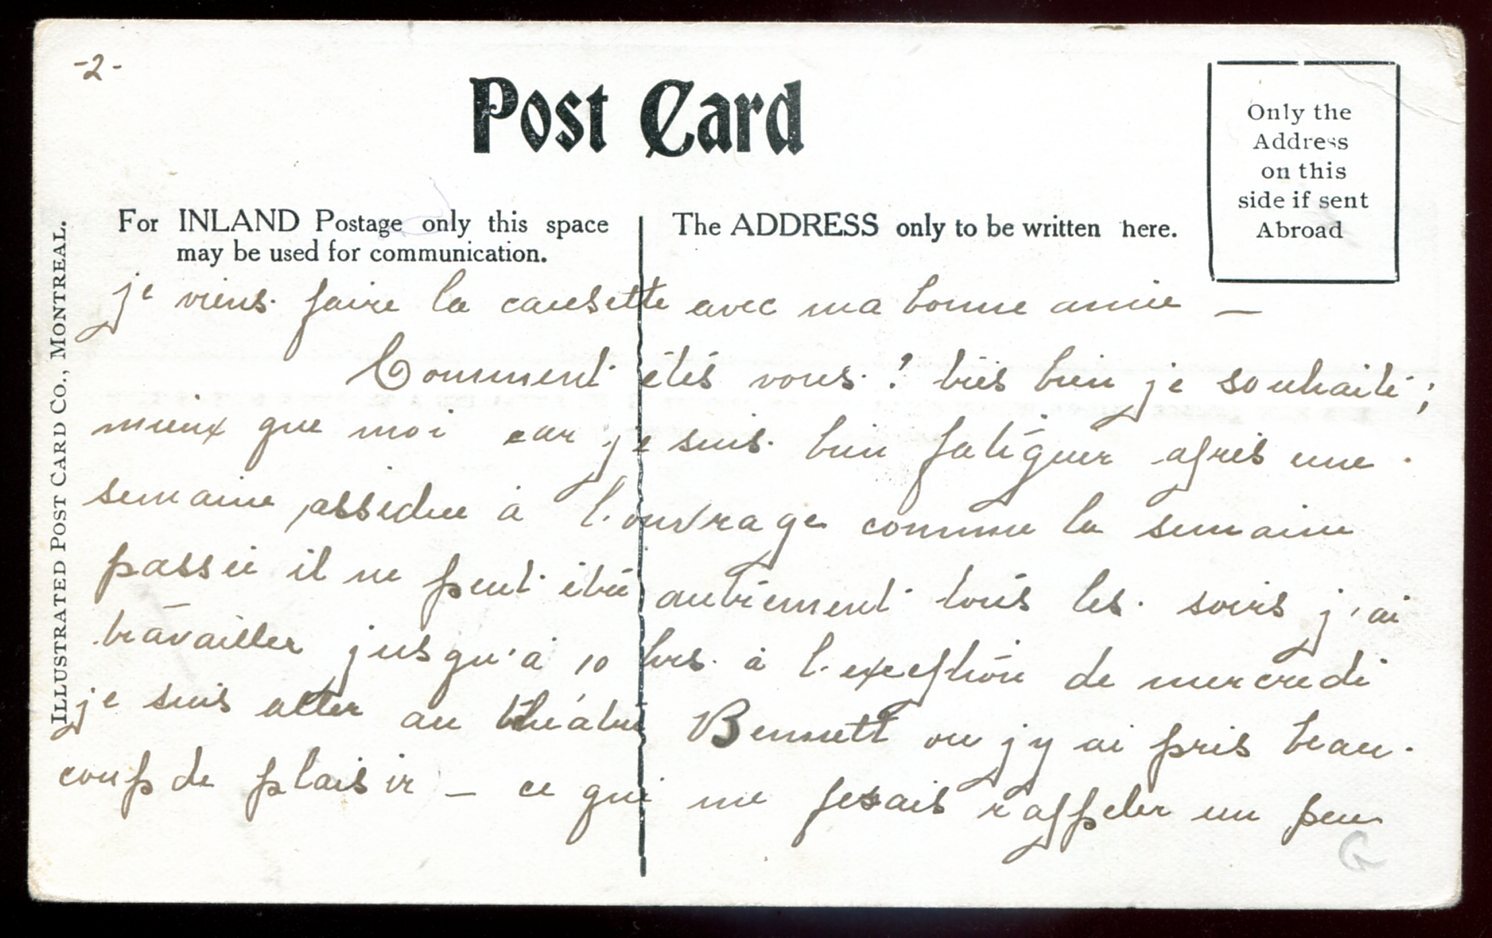 -2-
Post Card
Only the
Address
on this
side if sent
Abroad
For INLAND Postage only this space
may be used for communication.
The ADDRESS only to be written here.
ILLUSTRATED POST CARD CO., MONTREAL.
je viens faire la causette avec ma bonne amie —
Comment étés vous ? très bien je souhaite ;
mieux que moi car je suis bien fatiguer après une
semaine assidue à l'ouvrage comme la semaine
passée il ne peut être autrement tous les soirs j'ai
travailler jusqu'à 10 hrs à l'exception de mercredi
je suis aller au théâtre Bennett ou j'y ai pris beau-
coup de plaisir — ce qui me fesais rappeler un peu
G